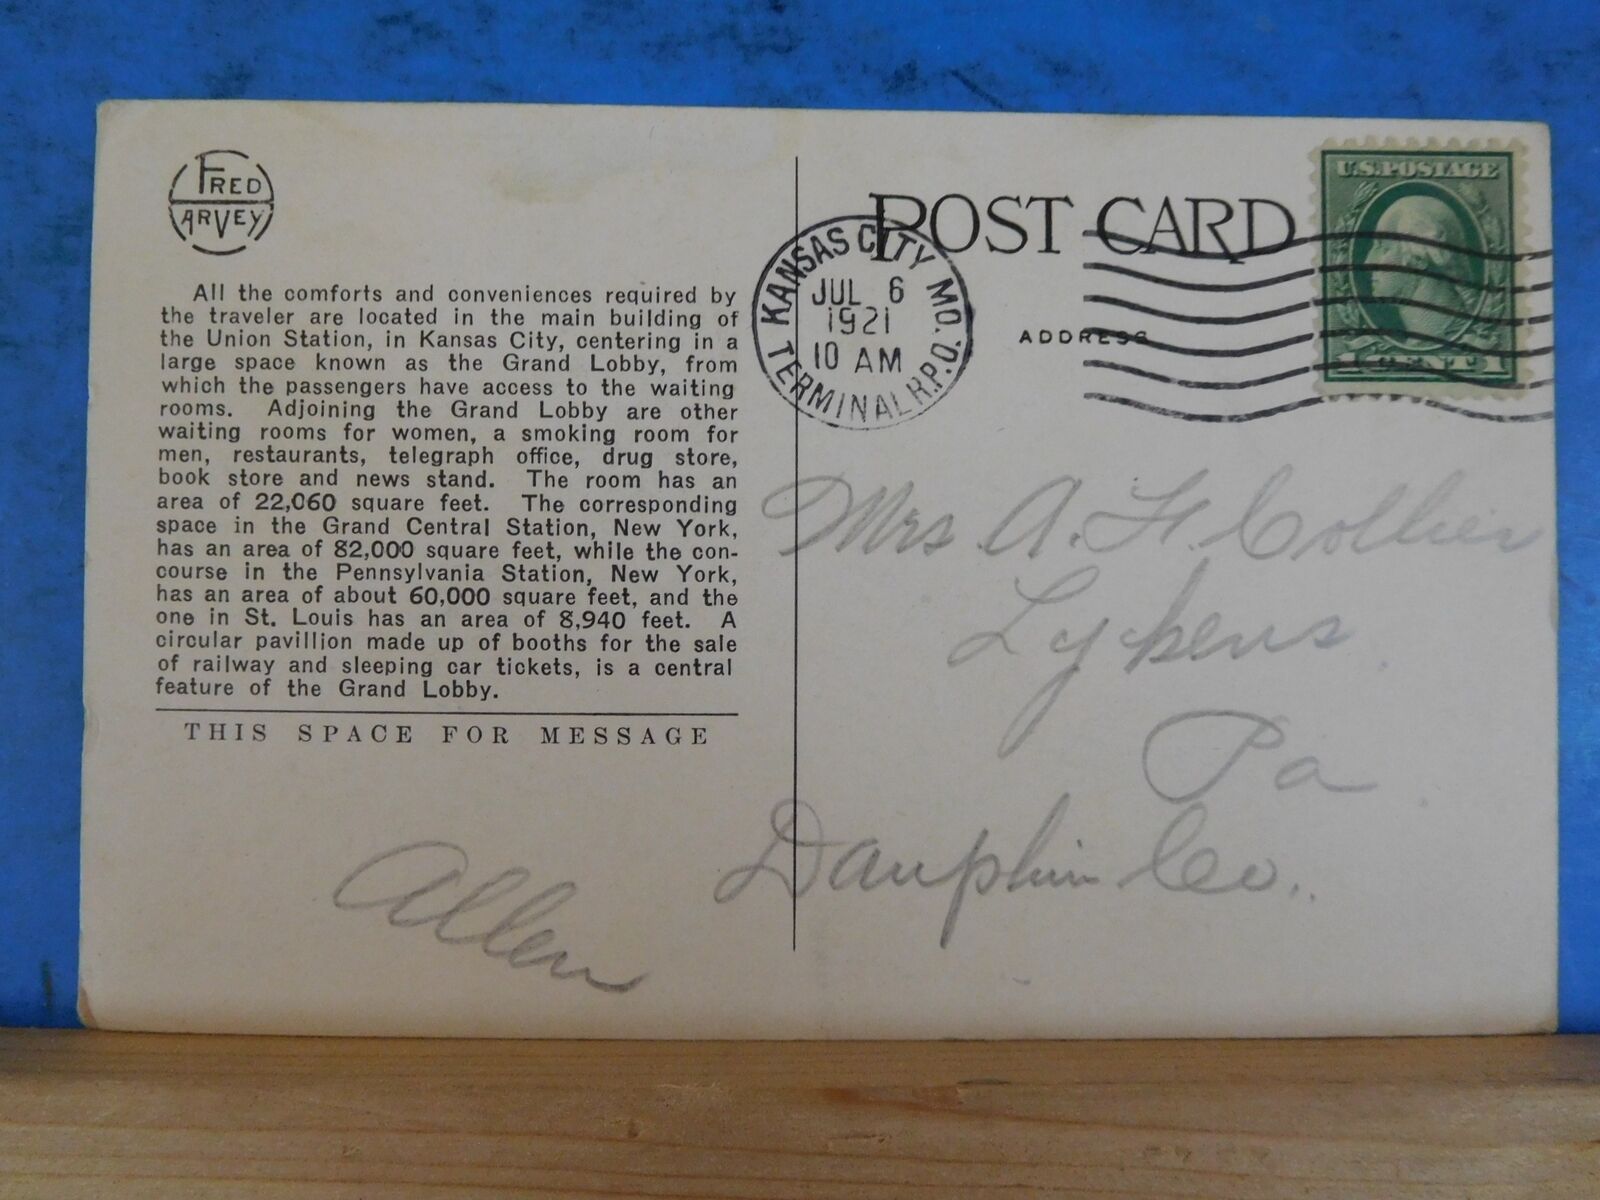 FRED
HARVEY
All the comforts and conveniences required by
the traveler are located in the main building of
the Union Station, in Kansas City, centering in a
large space known as the Grand Lobby, from
which the passengers have access to the waiting
rooms. Adjoining the Grand Lobby are other
waiting rooms for women, a smoking room for
men, restaurants, telegraph office, drug store,
book store and news stand. The room has an
area of 22,060 square feet. The corresponding
space in the Grand Central Station, New York,
has an area of 82,000 square feet, while the con-
course in the Pennsylvania Station, New York,
has an area of about 60,000 square feet, and the
one in St. Louis has an area of 8,940 feet. A
circular pavillion made up of booths for the sale
of railway and sleeping car tickets, is a central
feature of the Grand Lobby.
THIS SPACE FOR MESSAGE
Allen
POST CARD
KANSAS CITY MO.
JUL 6
1921
10 AM
TERMINAL R.P.O.
ADDRESS
U.S. POSTAGE
1 CENT 1
Mrs. A. F. Collier
Lykens
Pa.
Dauphin Co.